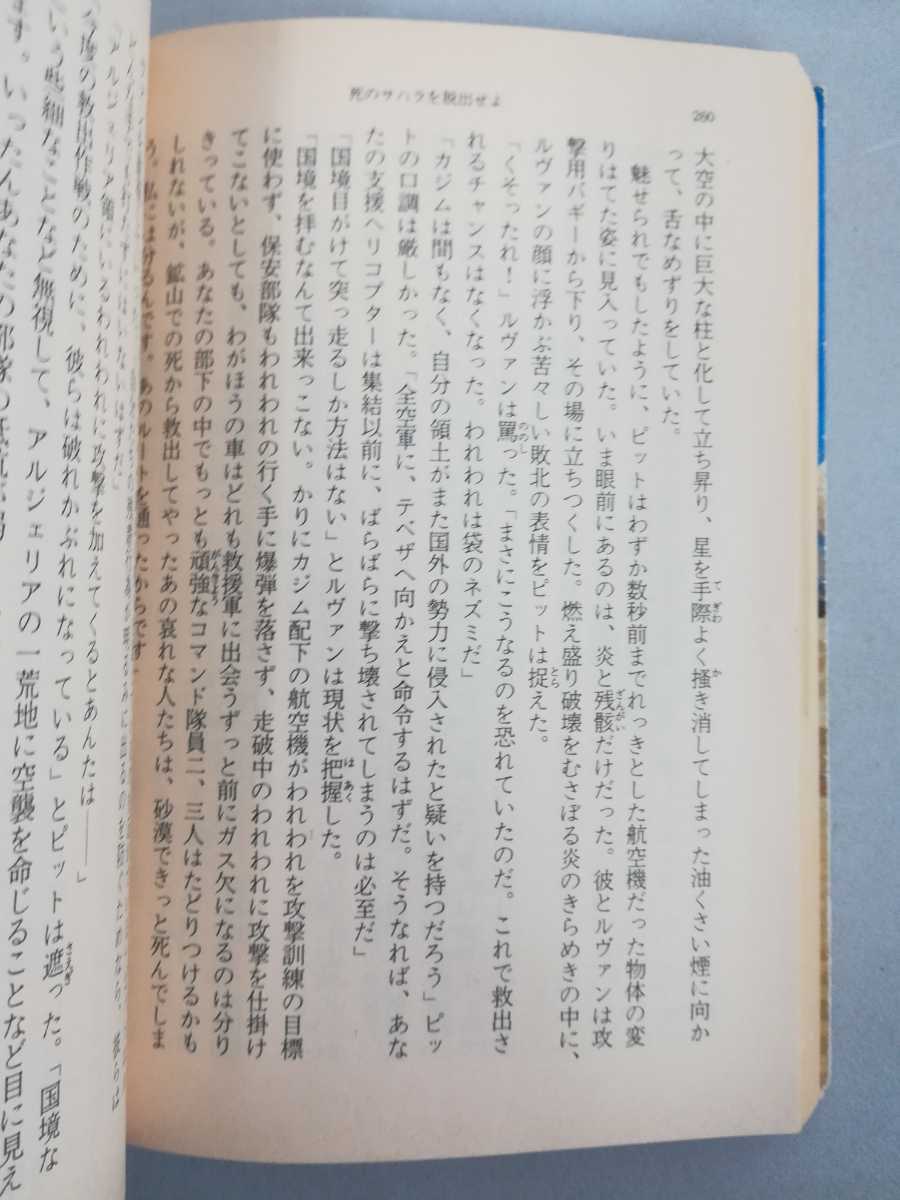 死のサハラを脱出せよ
260
大空の中に巨大な柱と化して立ち昇り、星を手際よく掻き消してしまった油くさい煙に向か
って、舌なめずりをしていた。
魅せられでもしたように、ピットはわずか数秒前までれっきとした航空機だった物体の変
りはてた姿に見入っていた。いま眼前にあるのは、炎と残骸だけだった。彼とルヴァンは攻
撃用バギーから下り、その場に立ちつくした。燃え盛り破壊をむさぼる炎のきらめきの中に、
ルヴァンの顔に浮かぶ苦々しい敗北の表情をピットは捉えた。
「くそったれ！」ルヴァンは罵った。「まさにこうなるのを恐れていたのだ。これで救出さ
れるチャンスはなくなった。われわれは袋のネズミだ」
「カジムは間もなく、自分の領土がまた国外の勢力に侵入されたと疑いを持つだろう」ピッ
トの口調は厳しかった。「全空軍に、テベザへ向かえと命令するはずだ。そうなれば、あな
たの支援ヘリコプターは集結以前に、ばらばらに撃ち壊されてしまうのは必至だ」
「国境目がけて突っ走るしか方法はない」とルヴァンは現状を把握した。
「国境を拝むなんて出来っこない。かりにカジム配下の航空機がわれわれを攻撃訓練の目標
に使わず、保安部隊もわれわれの行く手に爆弾を落さず、走破中のわれわれに攻撃を仕掛け
てこないとしても、わがほうの車はどれも救援軍に出会うずっと前にガス欠になるのは分り
きっている。あなたの部下の中でもっとも頑強なコマンド隊員二、三人はたどりつけるかも
しれないが、鉱山での死から救出してやったあの哀れな人たちは、砂漠できっと死んでしま
う。私には分るんです。あのルートを通ったからです」
われわれに攻撃を加えてくるとあんたは――」
救出作戦のために、彼らは破れかぶれになっている」とピットは遮った。「国境な
些細なことなど無視して、アルジェリアの一荒地に空襲を命じることなど目に見え
す。いったんあなたの部隊の